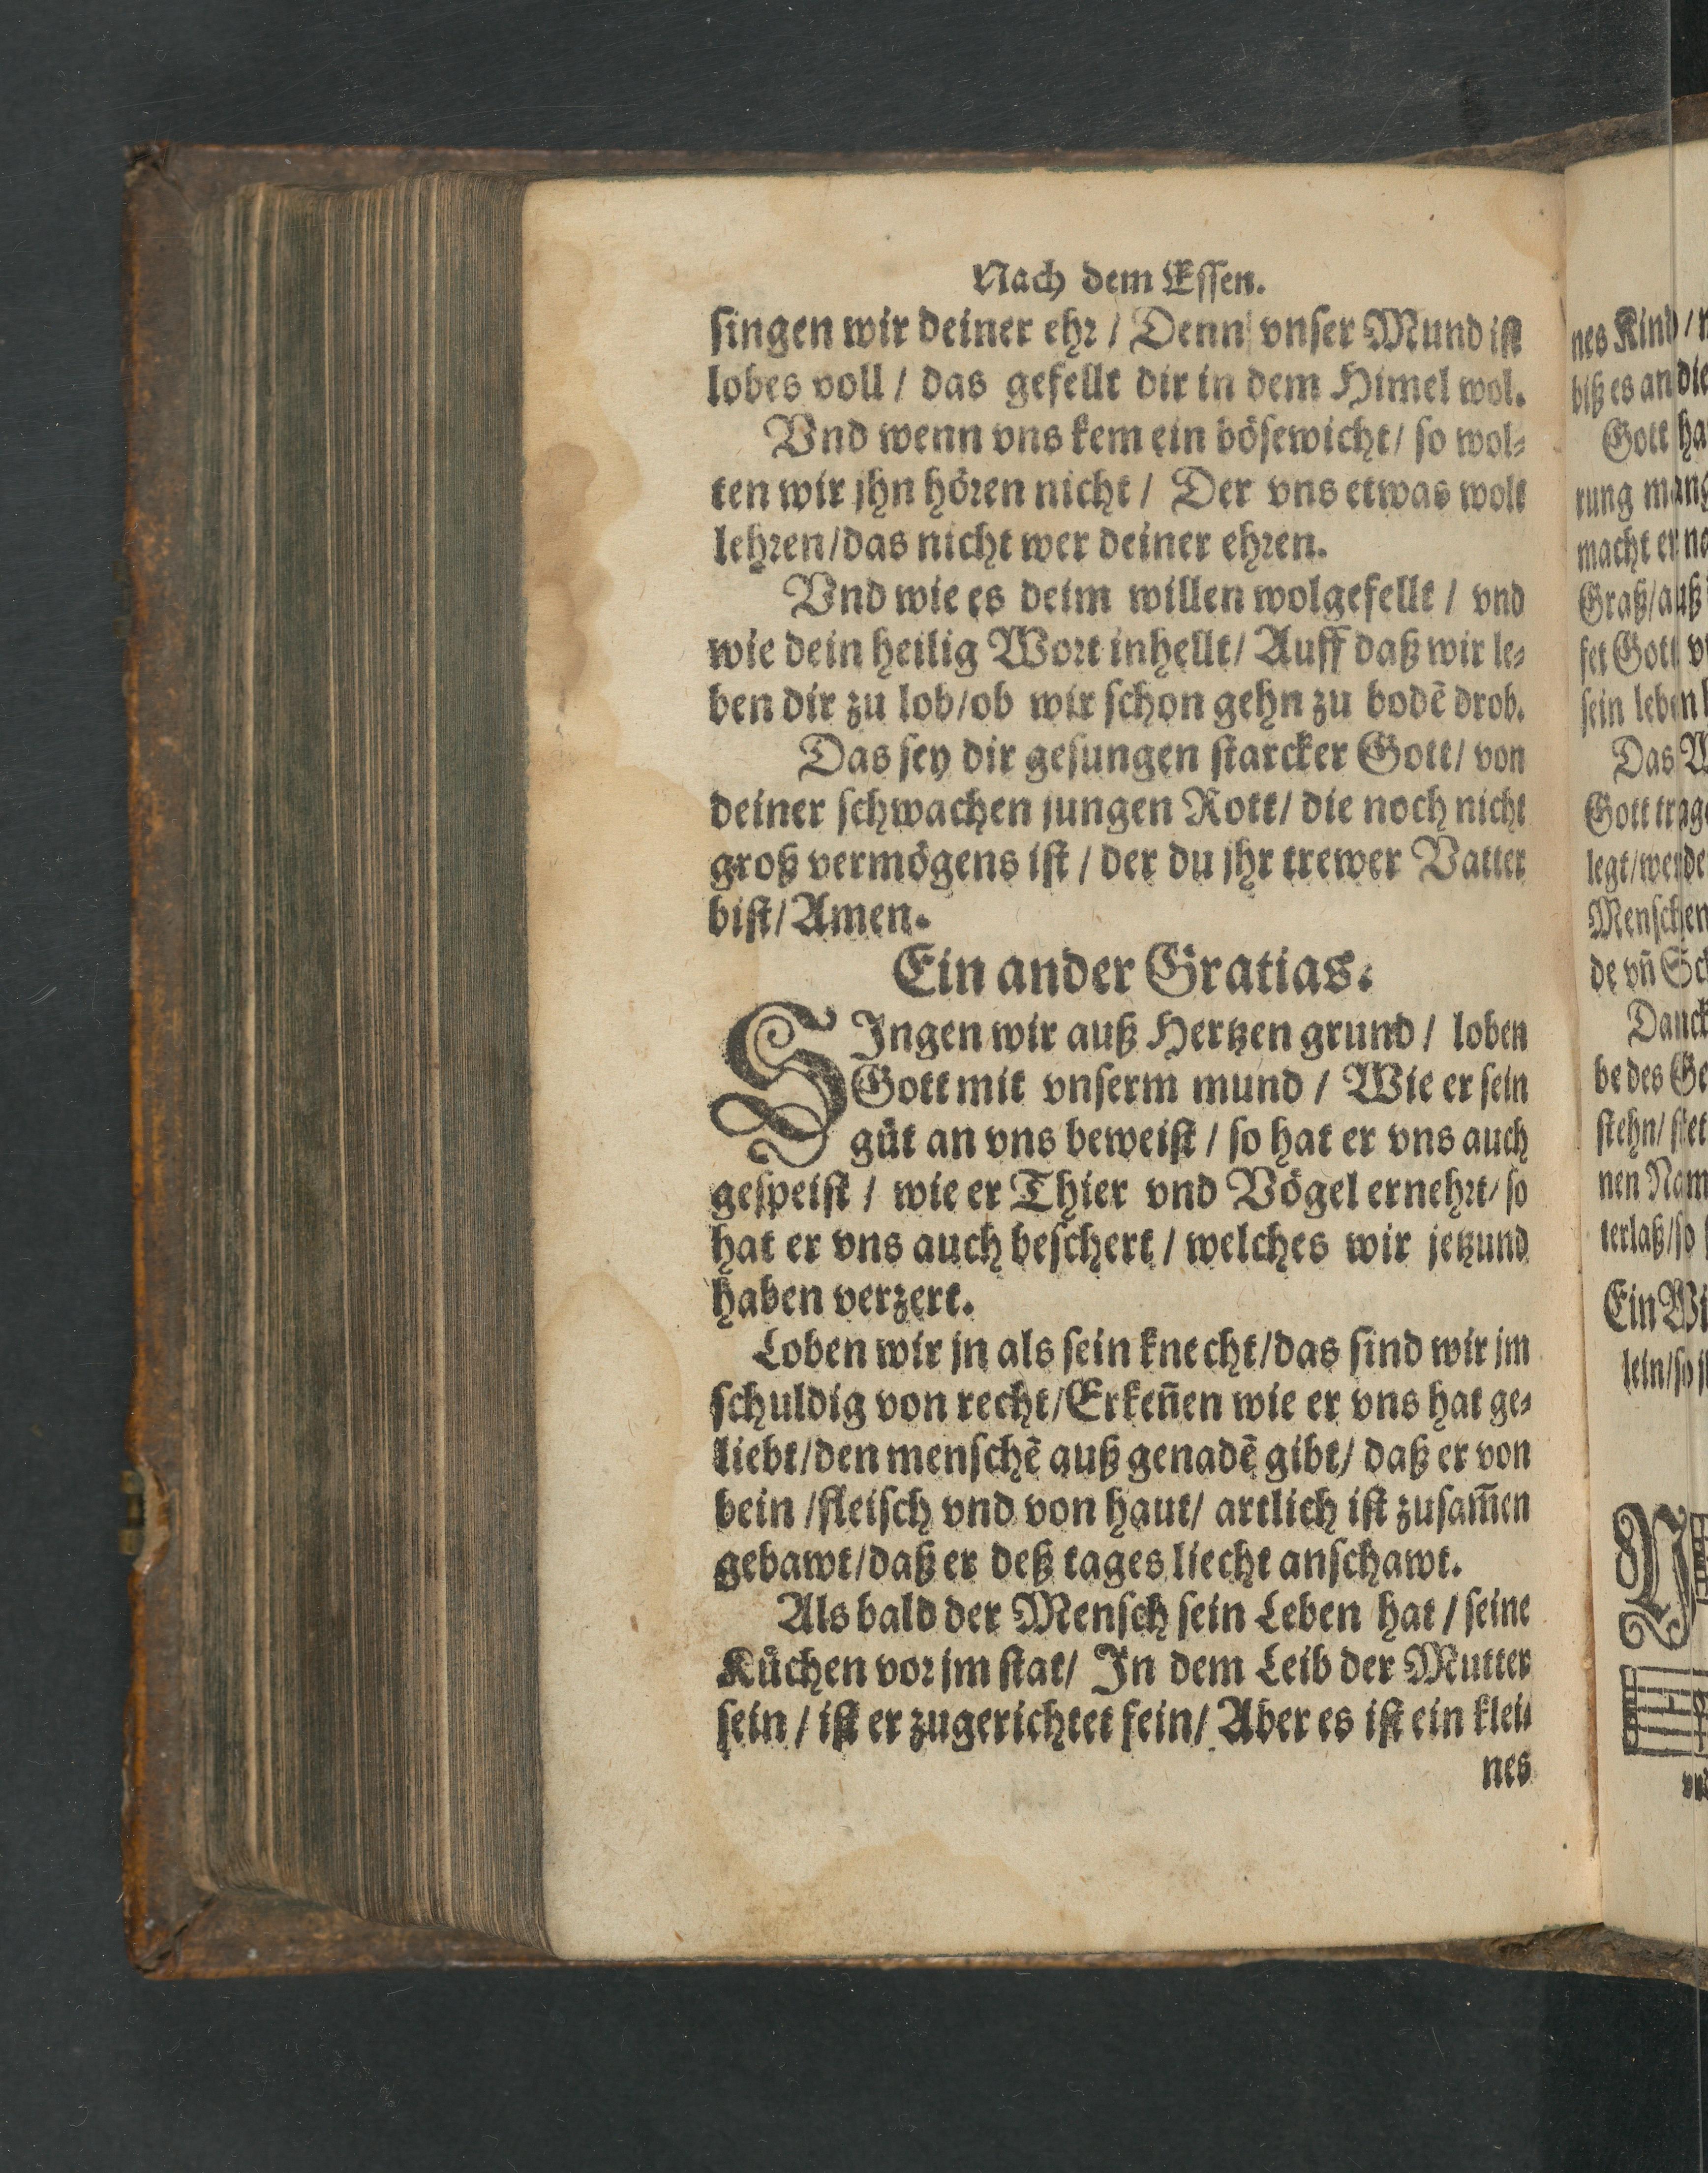 Nach dem Essen.
singen wir deiner ehr / Denn vnser Mund ist
lobes voll / das gefellt dir in dem Himel wol.
Vnd wenn vns kem ein bösewicht / so wol-
ten wir jhn hören nicht / Der vns etwas wolt
lehren / das nicht wer deiner ehren.
Vnd wie es deim willen wolgefellt / vnd
wie dein heilig Wort inhellt / Auff daß wir le-
ben dir zu lob / ob wir schon gehn zu bodē drob.
Das sey dir gesungen starcker Gott / von
deiner schwachen jungen Rott / die noch nicht
groß vermögens ist / der du jhr trewer Vatter
bist / Amen.
Ein ander Gratias.
SIngen wir auß Hertzen grund / loben
Gott mit vnserm mund / Wie er sein
güt an vns beweist / so hat er vns auch
gespeist / wie er Thier vnd Vögel ernehrt / so
hat er vns auch beschert / welches wir jetzund
haben verzert.
Loben wir jn als sein knecht / das sind wir jm
schuldig von recht / Erkeñen wie er vns hat ge-
liebt / den menschē auß genadē gibt / daß er von
bein / fleisch vnd von haut / artlich ist zusam̄en
gebawt / daß er deß tages liecht anschawt.
Als bald der Mensch sein Leben hat / seine
Küchen vor jm stat / In dem Leib der Mutter
sein / ist er zugerichtet fein / Aber es ist ein klei-
nes
nes Kind /
biß es an die
Gott
rung
macht er
Graß / auß
set Gott
sein leben
Das
Gott
legt /
Menschen
de vñ
Danck
be des
stehn /
nen Nam
terlaß / so
Ein
lein / so